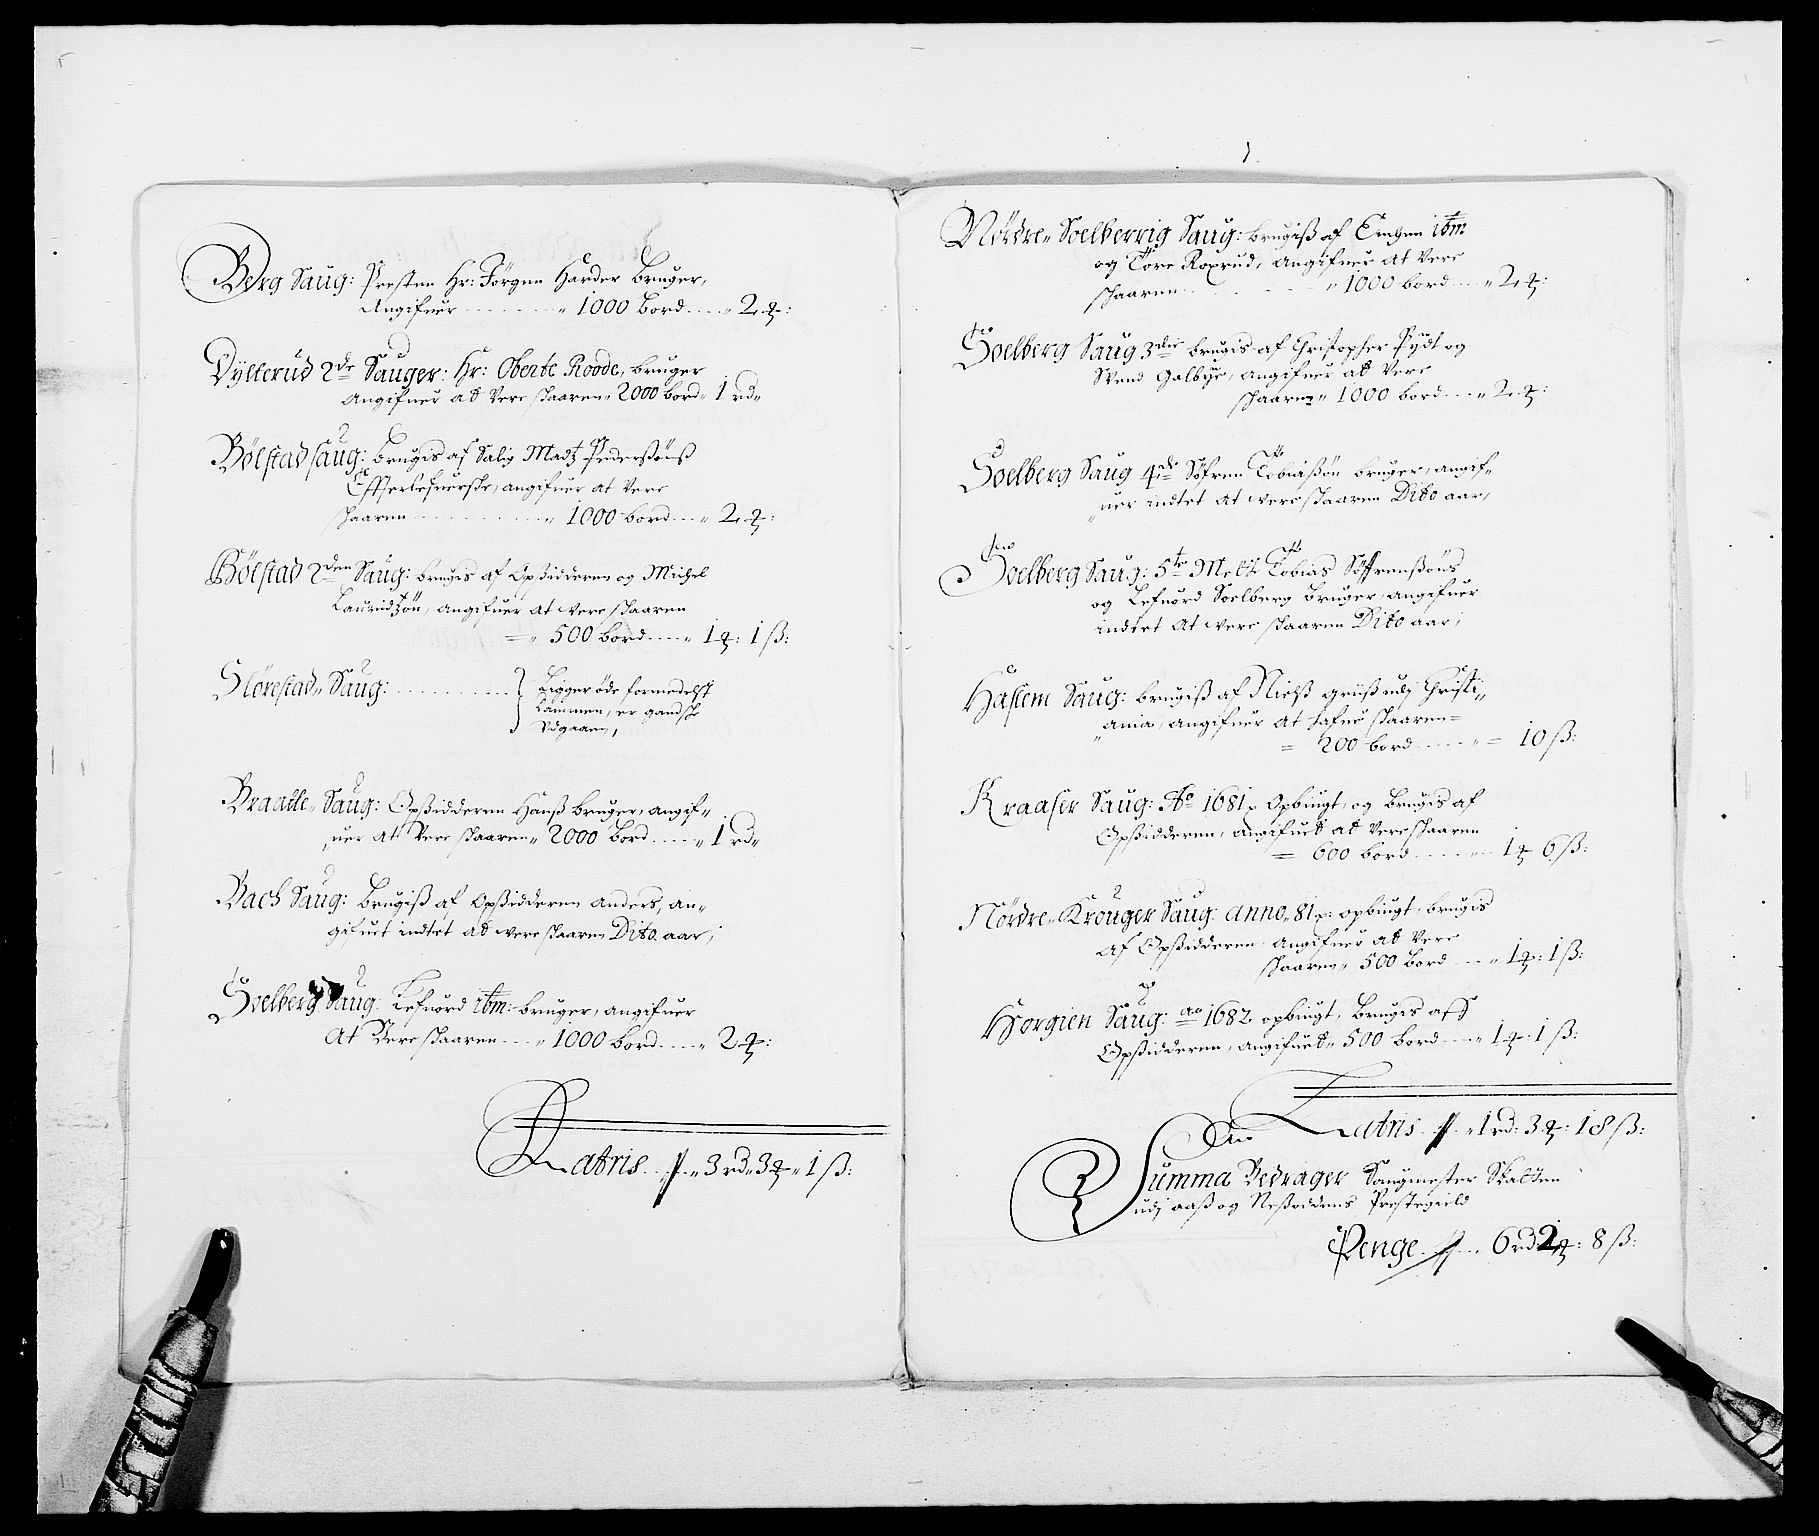 Berg Saug: Presten Hr: Jörgen Harder bruger,
Angifuer 1000 bord 2 ꝶ:
Dyllerud 2de Sauger: Hr: Oberte Roode, bruger
Angifuer at vere skaaren 2000 bord 1 rd
Bölstad saug: brugis af Salig Madtz Pederssöns
Effterlefuerske, angifuer at vere
skaaren 1000 bord 2 ꝶ:
Bölstad 2den Saug: brugis af Opsidderen og Michel
Lauridtzön, angifuer at were skaaren
500 bord 1 ꝶ: 1 ß:
Slörestad Saug: Ligger öde formedelst
dammen, er gandske
Udgaaen,
Braatte Saug: Opsidderen Hanss bruger, angif-
uer at vere skaaren 2000 bord 1 rd
Bach Saug: Brugiss af opsidderen anders, an-
gifuet indtet at were skaaren Dito aar,
Soelberg Saug: Lefuord ibm: bruger, angifuer
At vere skaaren 1000 bord 2 ꝶ:
Latris 3 rd 3 ꝶ 1 ß:
Nördre Soelberrig Saug: brugiss af Engen ibm
og Tore Roxrud, angifuer at vere
skaaren 1000 bord 2 ꝶ:
Soelberg Saug 3die brugis af Christopher Pydt og
Svend Galbye, angifuer at vere
skaaren 1000 bord 2 ꝶ:
Soelberg Saug 4de Söfren Tobiassön bruger, angif-
uer indtet at were skaaren Dito aar,
Soelberg Saug: 5te Tobias Söffrenssöns
og Lefuord Soelberg bruger, angifuer
indtet at were skaaren Dito aar,
Haslem Saug: brugiss af Nielss udj Christi-
ania, angifuer at hafue skaaren
200 bord 10 ß:
Kraaser Saug: Ao 1681 opbiugt, og brugis af
Opsidderen, angifuet at vere skaaren
600 bord 1 ꝶ 6 ß:
Nördre Krouger Saug: anno 81 opbiugt, brugis
af Opsidderen, angifuer at vere
skaaren 500 bord 1 ꝶ: 1 ß:
Horgien Saug: ao 1682 opbiugt, brugis aff
Opsidderen, angifuet 500 bord 1 ꝶ: 1 ß:
Latris 1 rd: 3 ꝶ: 18 ß:
Summa Bedrager Saugmester Skatten
udj aass og Nessoddens Prestegield
Penge 6 rd 2 ꝶ: 8 ß: